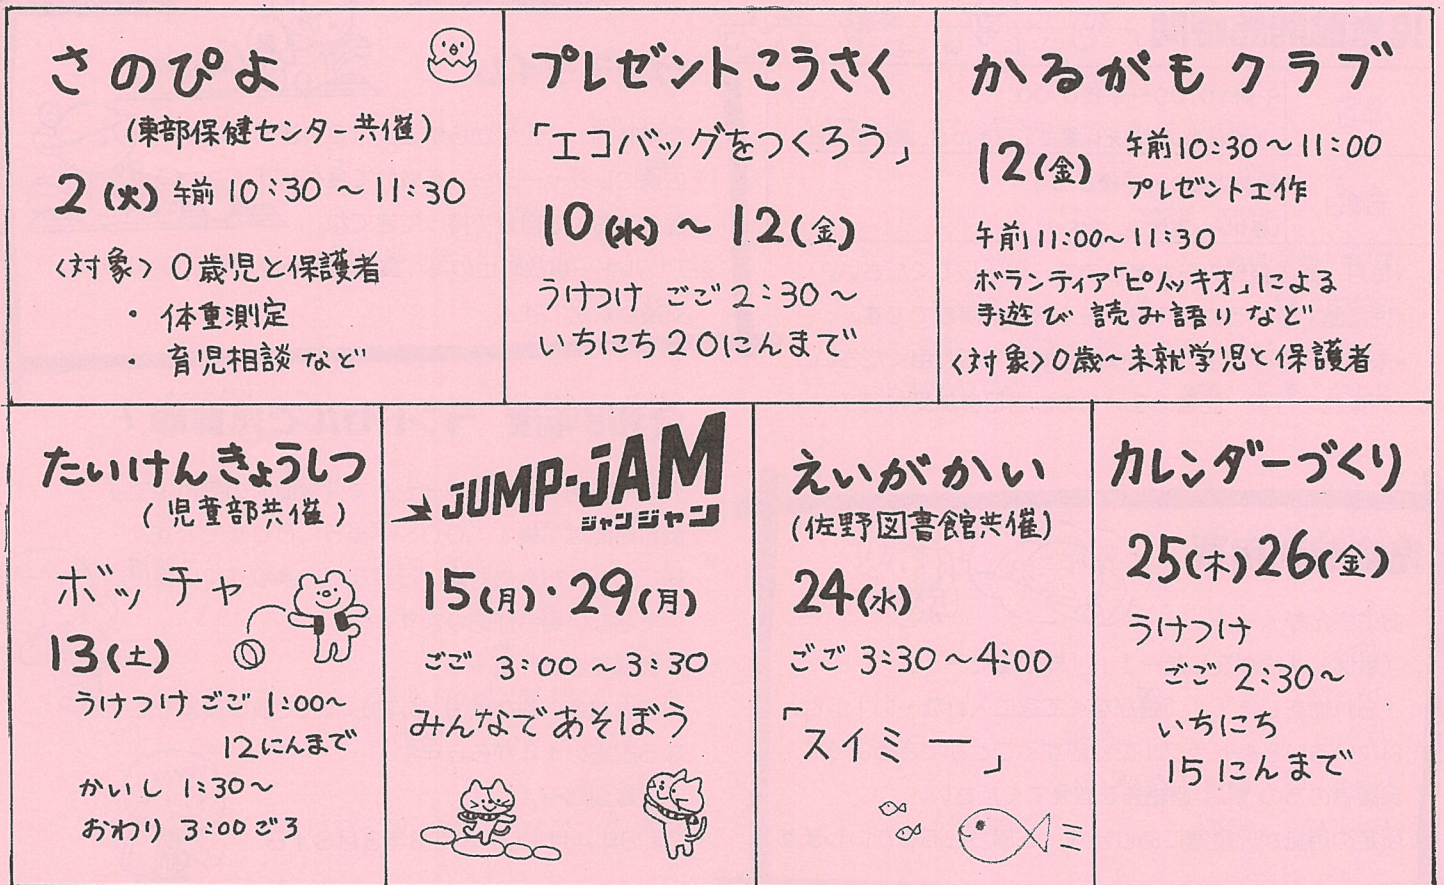 さのぴよ
(東部保健センター共催)
2(火) 午前 10:30 〜 11:30
〈対象〉 0歳児と保護者
・ 体重測定
・ 育児相談 など
プレゼントこうさく
「エコバッグをつくろう」
10(水) 〜 12(金)
うけつけ ごご 2:30 〜
いちにち 20にんまで
かるがもクラブ
12(金) 午前10:30 〜 11:00
プレゼント工作
午前11:00〜11:30
ボランティア「ピノッキオ」による
手遊び 読み語り など
〈対象〉0歳〜未就学児と保護者
たいけんきょうしつ
(児童部共催)
ボッチャ
13(土)
うけつけ ごご 1:00〜
12にんまで
かいし 1:30〜
おわり 3:00ごろ
JUMP-JAM
ジャンジャン
15(月)・29(月)
ごご 3:00 〜 3:30
みんなであそぼう
えいがかい
(佐野図書館共催)
24(水)
ごご 3:30 〜 4:00
「スイミー」
カレンダーづくり
25(木) 26(金)
うけつけ
ごご 2:30〜
いちにち
15 にんまで